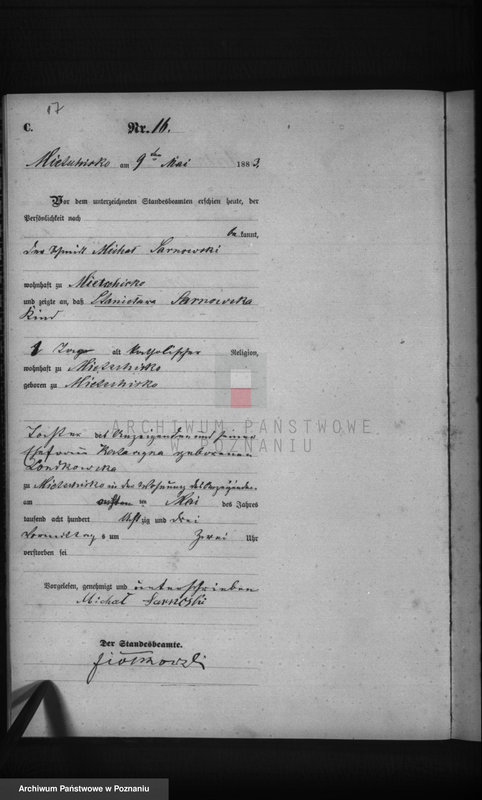 17
C. Nr. 16.
Mietschisko am 9ten Mai 1883.
Vor dem unterzeichneten Standesbeamten erschien heute, der
Persönlichkeit nach
be kannt,
der Michał Sarnowski
wohnhaft zu Mietschisko
und zeigte an, daß Stanisława Sarnowska
Kind
1 Tag alt katholischer Religion,
wohnhaft zu Mietschisko
geboren zu Mietschisko
ARCHIWUM PAŃSTWOWE
W POZNANIU
Tochter des Anzeigenden und seiner
Ehefrau Katarzyna geborenen
zu Mietschisko in der Wohnung des Anzeigenden
am achten Mai des Jahres
tausend acht hundert acht zig und drei
Vormittags um zwei Uhr
verstorben sei
Vorgelesen, genehmigt und unterschrieben
Michał
Der Standesbeamte.
Archiwum Państwowe w Poznaniu